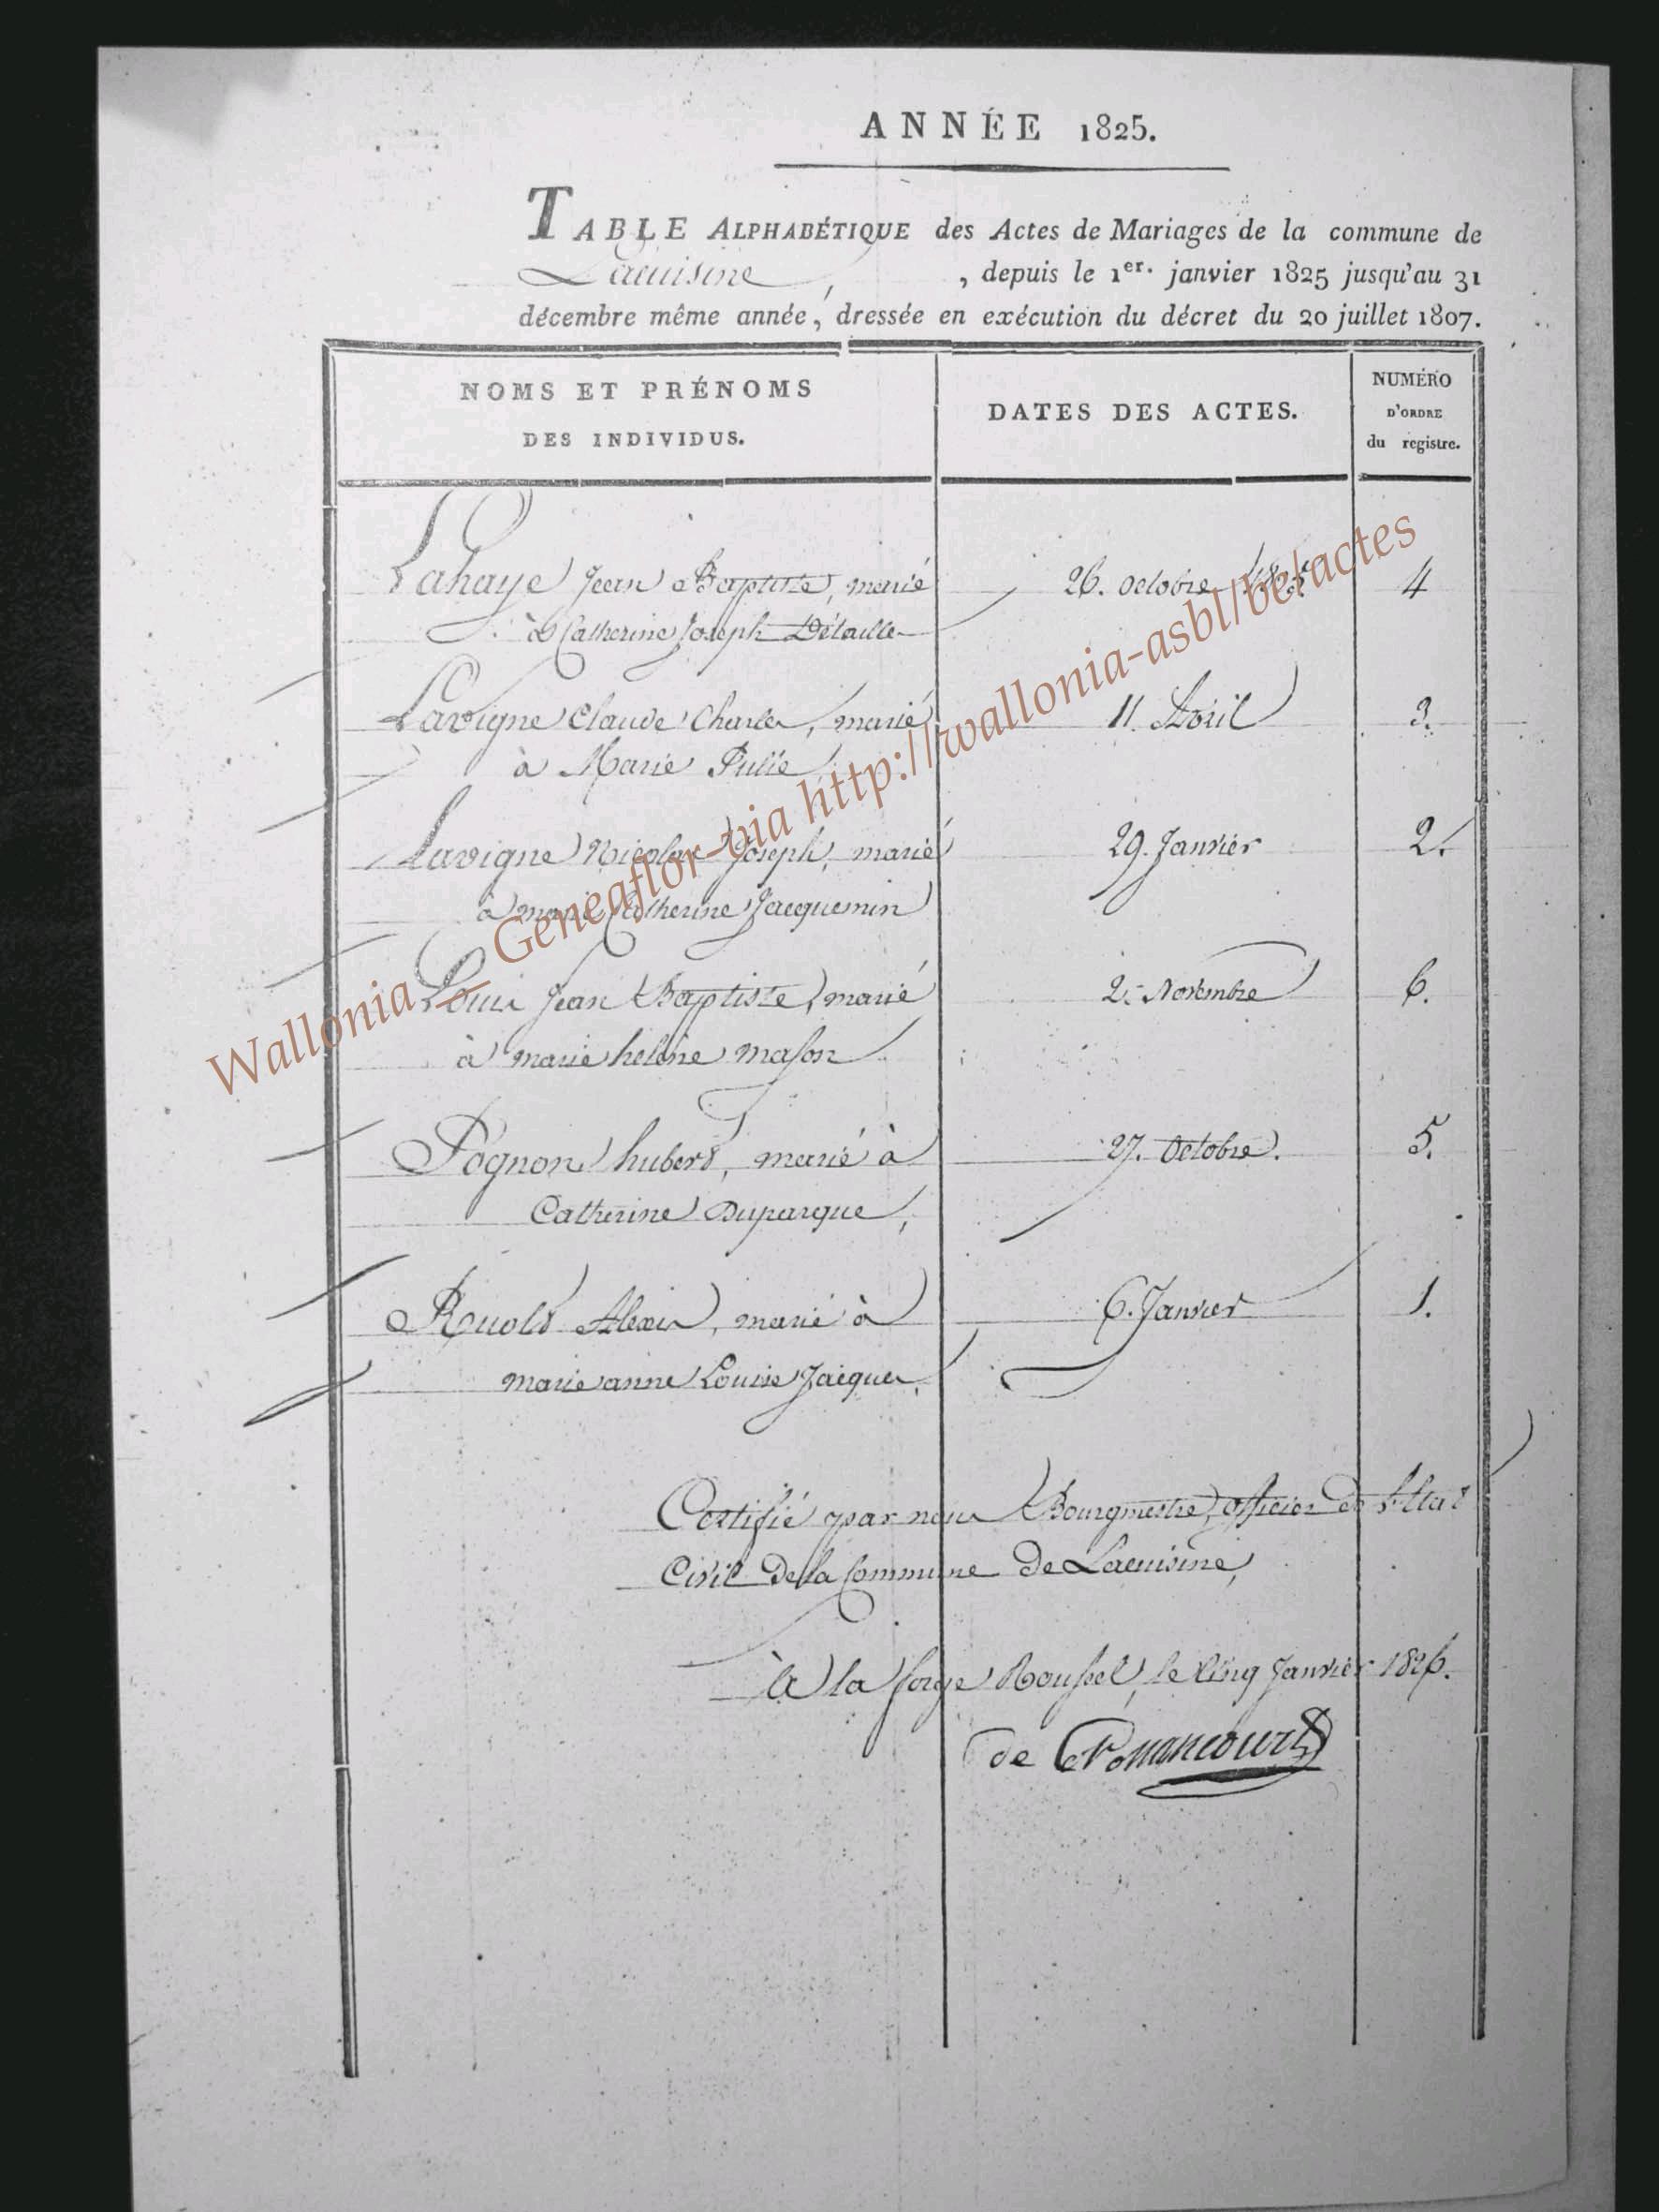 ANNÉE 1825.
TABLE ALPHABÉTIQUE des Actes de Mariages de la commune de
Lacuisine, , depuis le 1er. janvier 1825 jusqu'au 31
décembre même année, dressée en exécution du décret du 20 juillet 1807.
NOMS ET PRÉNOMS
DES INDIVIDUS.
DATES DES ACTES.
NUMÉRO
D'ORDRE
du registre.
Lahaye Jean Baptiste, marié 26. Octobre 1825 4
à Catherine Joseph Détaille
Lavigne Claude Charles, marié 11. Avril 3.
à Marie Julie
Lavigne Nicolas Joseph, marié 29. Janvier 2.
à marie Catherine Jacquemin
Louis Jean Baptiste, marié 2. Novembre 6.
à marie helène mason
Pognon hubert, marié à 27. Octobre. 5.
Catherine Duparque,
Ruold Alexis, marié à 6. Janvier 1.
marie anne Louise Jacques,
Certifié par nous Bourgmestre, officier de l'Etat
Civil De la Commune De Lacuisine,
à la forge Roussel, le Cinq Janvier 1826.
de
Wallonia - Geneaflor-via http://wallonia-asbl/be/actes